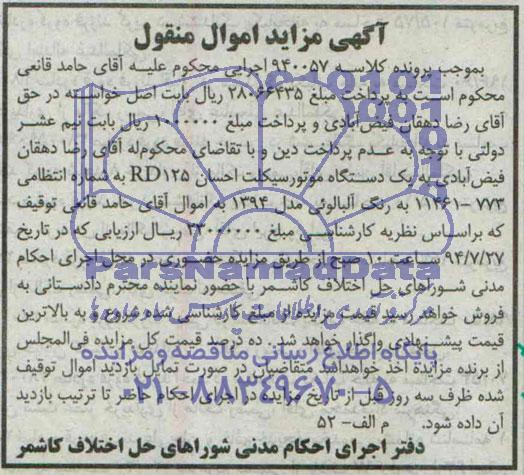 آگهی مزاید اموال منقول
بموجب پرونده کلاسه ۹۴۰۰۵۷ اجرایی محکوم علیه آقای حامد قانعی
محکوم است به پرداخت مبلغ ۲۸۰۶۶۴۳۵ ریال بابت اصل خواسته در حق
آقای رضا دهقان فیض‌آبادی و پرداخت مبلغ ۱۰۰۰۰۰۰ ریال بابت نیم عشر
دولتی با توجه به عدم پرداخت دین و با تقاضای محکوم‌له آقای رضا دهقان
فیض‌آبادی به یک دستگاه موتورسیکلت احسان RD۱۲۵ به شماره انتظامی
۷۷۳ -۱۱۴۶۱ به رنگ آلبالوئی مدل ۱۳۹۴ به اموال آقای حامد قانعی توقیف
که براساس نظریه کارشناسی مبلغ ۲۳۰۰۰۰۰۰ ریال ارزیابی که در تاریخ
۹۴/۷/۲۷ ساعت ۱۰ صبح از طریق مزایده حضوری در محل اجرای احکام
مدنی شوراهای حل اختلاف کاشمر با حضور نماینده محترم دادستانی به
فروش خواهد رسید قیمت مزایده از مبلغ کارشناسی شده شروع و به بالاترین
قیمت پیشنهادی واگذار خواهد شد. ده درصد قیمت کل مزایده فی‌المجلس
از برنده مزایده اخذ خواهد شد متقاضیان در صورت تمایل بازدید اموال توقیف
شده ظرف سه روز قبل از تاریخ مزایده در اجرای احکام حاضر تا ترتیب بازدید
آن داده شود. م الف- ۵۲
دفتر اجرای احکام مدنی شوراهای حل اختلاف کاشمر
ParsNamadData
پایگاه اطلاع رسانی مناقصه و مزایده
۰۲۱-۸۸۳۴۹۶۷۰-۵